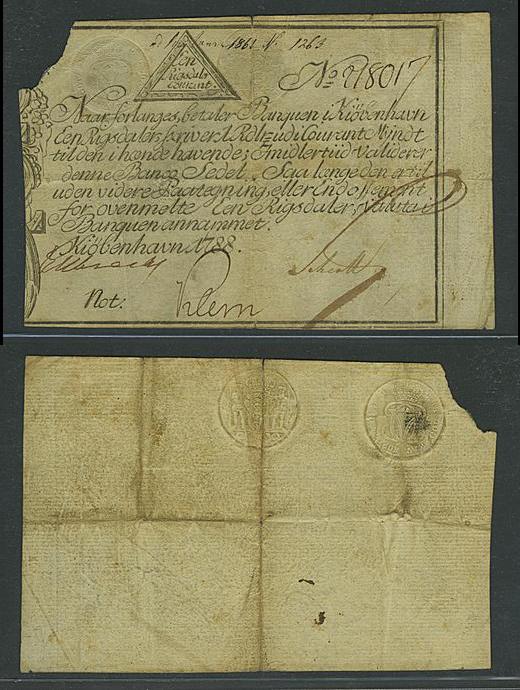 1861 No. 1263
Een
Rigsdaler
courant.
No 218017
Naar forlanges, betaler Banquen i Kiøbenhavn
Een Rigsdaler, skriver 1 Rdlr. udi Courant Myndt
til den i hænde havende; Imidlertiid validerer
denne Banco Sedel, Saa længe den er til
uden videre Paategning, eller Endossement
for ovenmelte Een Rigsdalers Valuta i
Banquen annammet.
Kiøbenhavn 1788.
Not: Klem